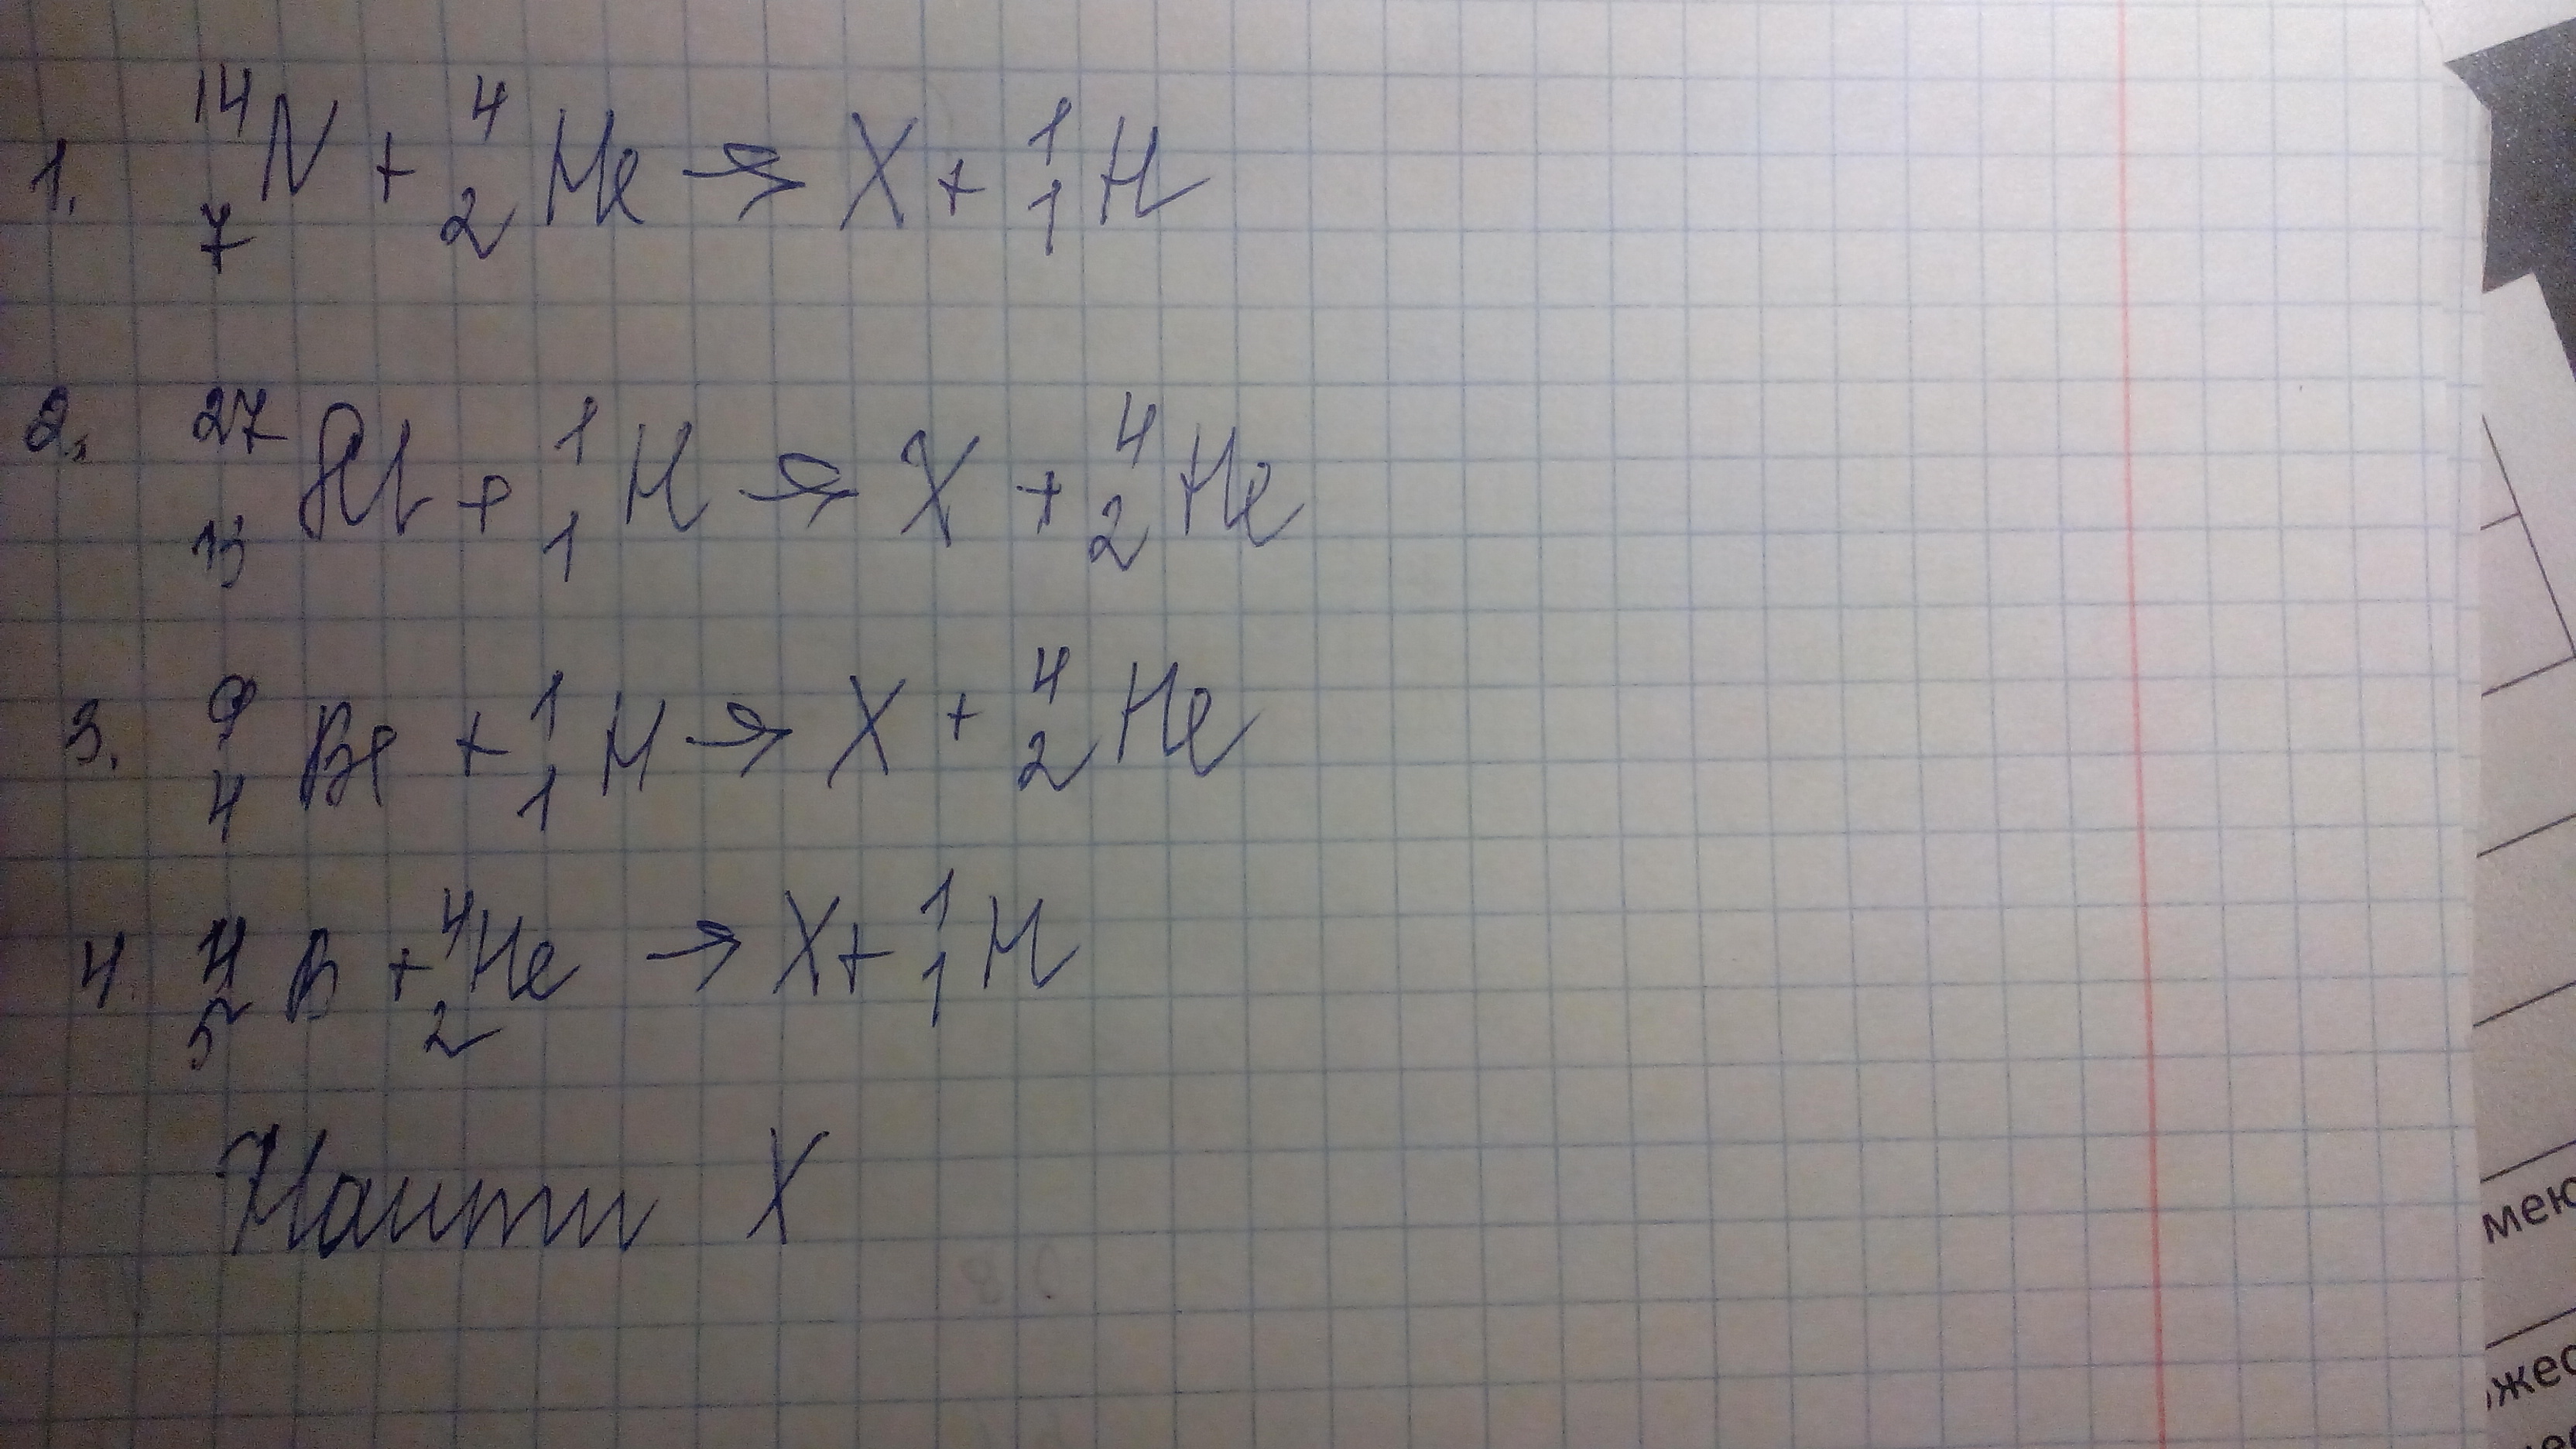 1. ¹⁴₇N + ⁴₂He → X + ¹₁H
2. ²⁷₁₃Al + ¹₁H → X + ⁴₂He
3. ⁹₄Be + ¹₁H → X + ⁴₂He
4. ¹¹₅B + ⁴₂He → X + ¹₁H
Наити X